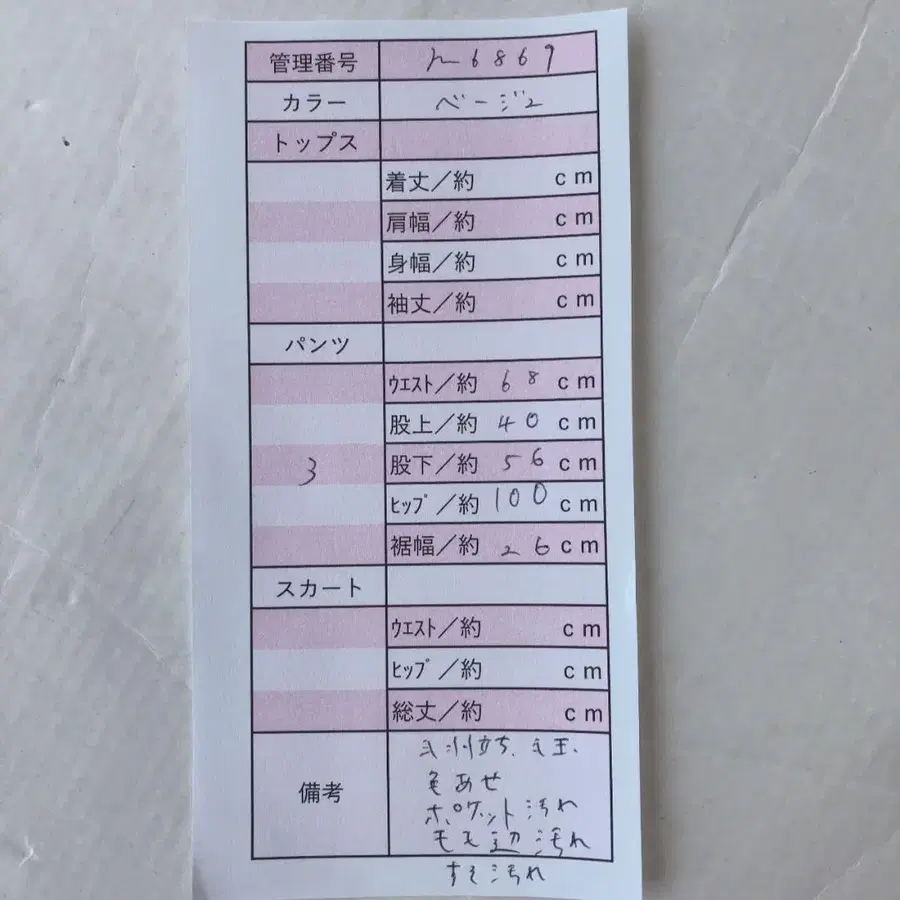 管理番号 h6869
カラー ベージュ
トップス
着丈／約 cm
肩幅／約 cm
身幅／約 cm
袖丈／約 cm
パンツ
ｳｴｽﾄ／約 68 cm
股上／約 40 cm
3 股下／約 56 cm
ﾋｯﾌﾟ／約 100 cm
裾幅／約 26 cm
スカート
ｳｴｽﾄ／約 cm
ﾋｯﾌﾟ／約 cm
総丈／約 cm
備考 毛羽立ち、毛玉、
色あせ
ポケット汚れ
モモ辺汚れ
すそ汚れ